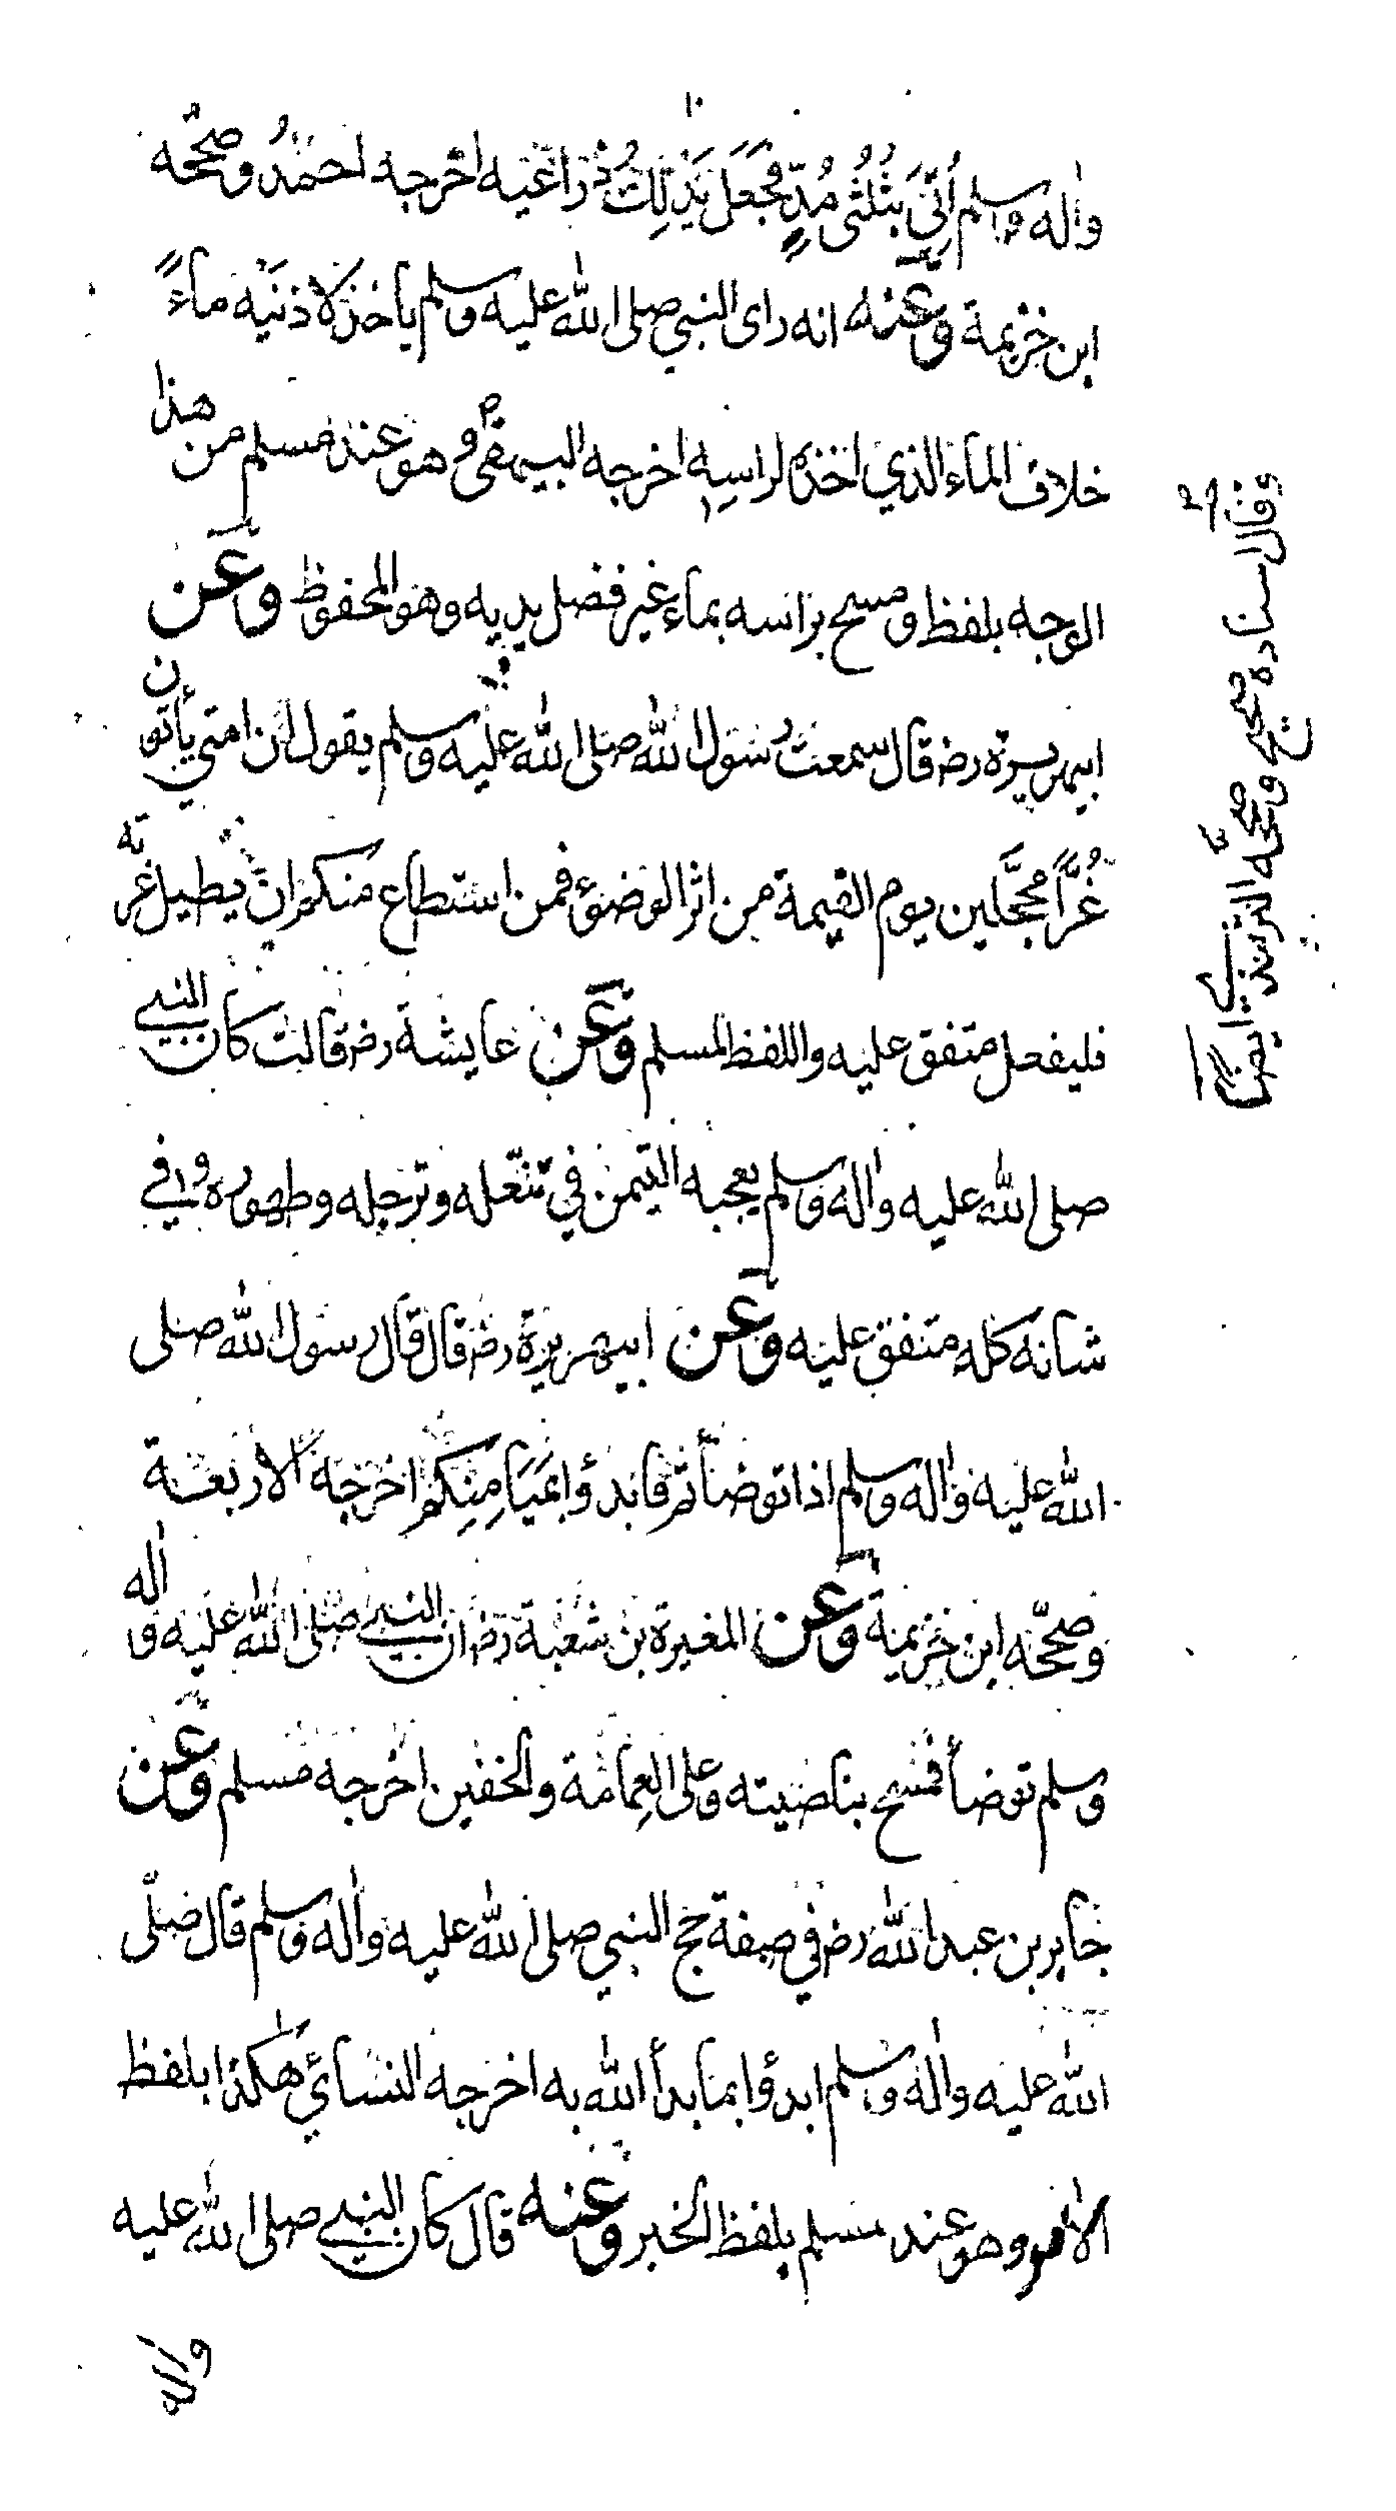 ١٠
واله وسلم اُتِيَ بثُلُثَى مُدٍّ فجَعَلَ يَدْلِكُ ذراعيه اخرجه احمدُ وصحّحه
ابن خزيمة وعنه انه راى النبي صلى الله عليه وسلم ياخذ لاذنَيْه ماءً
خلاف الماء الذي اخذه لراسِهِ اخرجه البيهقى وهو عند مسلم من هذا
الوجه بلفظ ومسح براسه بماء غير فضل يديه وهو المحفوظ وعن
ابيهريرة رض قال سمعت رسول الله صلى الله عليه وسلم يقول ان امتي يأتون
غُرًّا مُحجَّلين يوم القيمة من اثر الوضوء فمن استطاع منكم ان يطيل غرته
فليفعل متفق عليه واللفظ لمسلم وعن عايشة رض قالت كان النبي
صلى الله عليه واله وسلم يعجبه التيمن في تنعّله وترجله وطهوره وفي
شانه كله متفق عليه وعن ابيهريرة رض قال قال رسول الله صلى
الله عليه واله وسلم اذا توضأتم فابدؤا بمَيَامِنِكم اخرجه الاربعة
وصحّحه ابن خزيمة وعن المغيرة بن شعبة رض ان النبي صلى الله عليه واله
وسلم توضأ فمسح بناصيته وعلى العِمامة والخفين اخرجه مسلم وعن
جابر بن عبد الله رض في صفة حج النبي صلى الله عليه واله وسلم قال صلى
الله عليه واله وسلم ابدؤا بما بدأ الله به اخرجه النسائي هكذا بلفظ
الامر وهو عند مسلم بلفظ الخبر وعنه قال كان النبي صلى الله عليه
وقال اسناده صحيح وصحّحه الترمذي ايضا